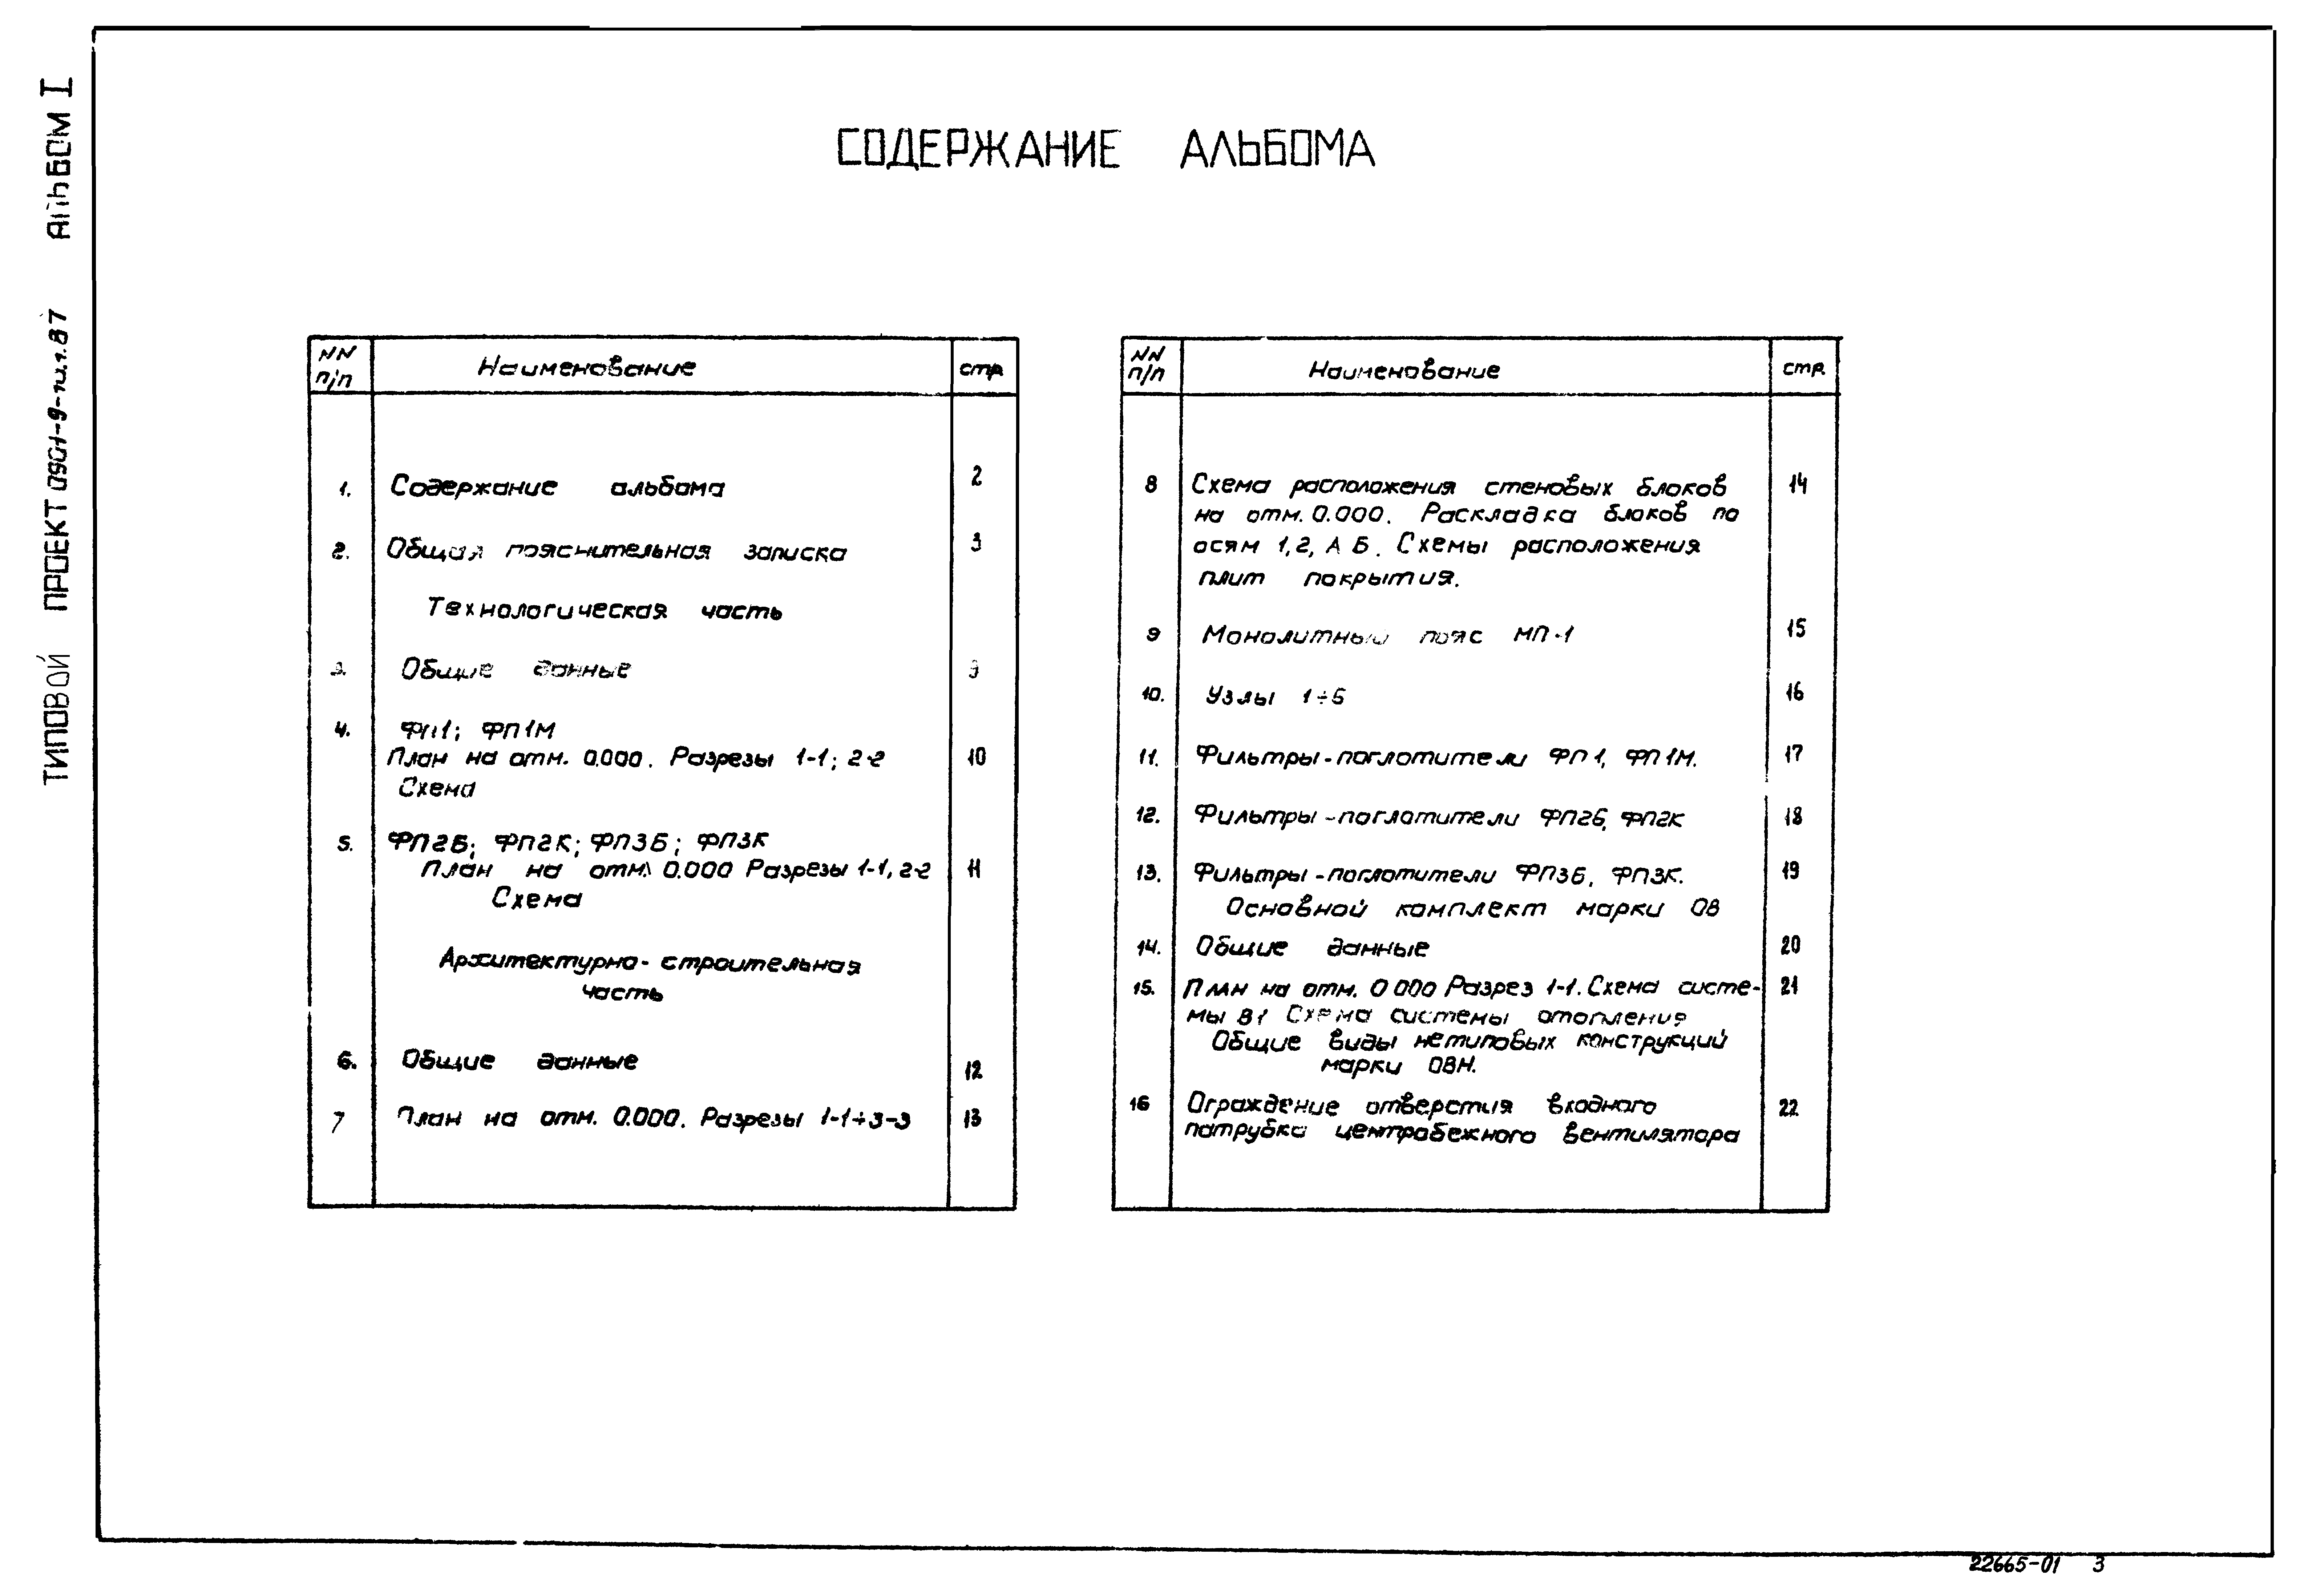 ТИПОВОЙ ПРОЕКТ 0901-9-14.1.87 АЛЬБОМ I
СОДЕРЖАНИЕ АЛЬБОМА
NN
п/п
Наименование
стр.
1. Содержание альбома 2
2. Общая пояснительная записка 3
Технологическая часть
3. Общие данные 9
4. ФП1; ФП1М
План на отм. 0.000. Разрезы 1-1; 2-2 10
Схема
5. ФП2Б; ФП2К; ФП3Б; ФП3К
План на отм. 0.000 Разрезы 1-1, 2-2 11
Схема
Архитектурно-строительная
часть
6. Общие данные 12
7 План на отм. 0.000. Разрезы 1-1÷3-3 13
NN
п/п
Наименование
стр.
8 Схема расположения стеновых блоков 14
на отм. 0.000. Раскладка блоков по
осям 1, 2, А Б. Схемы расположения
плит покрытия.
9 Монолитный пояс МП-1 15
10. Узлы 1÷5 16
11. Фильтры-поглотители ФП1, ФП1М. 17
12. Фильтры-поглотители ФП2Б, ФП2К 18
13. Фильтры-поглотители ФП3Б, ФП3К. 19
Основной комплект марки ОВ
14. Общие данные 20
15. План на отм. 0 000 Разрез 1-1. Схема систе- 21
мы В1 Схема системы отопления
Общие виды нетиповых конструкций
марки ОВН.
16 Ограждение отверстия входного 22
патрубка центробежного вентилятора
22665-01 3